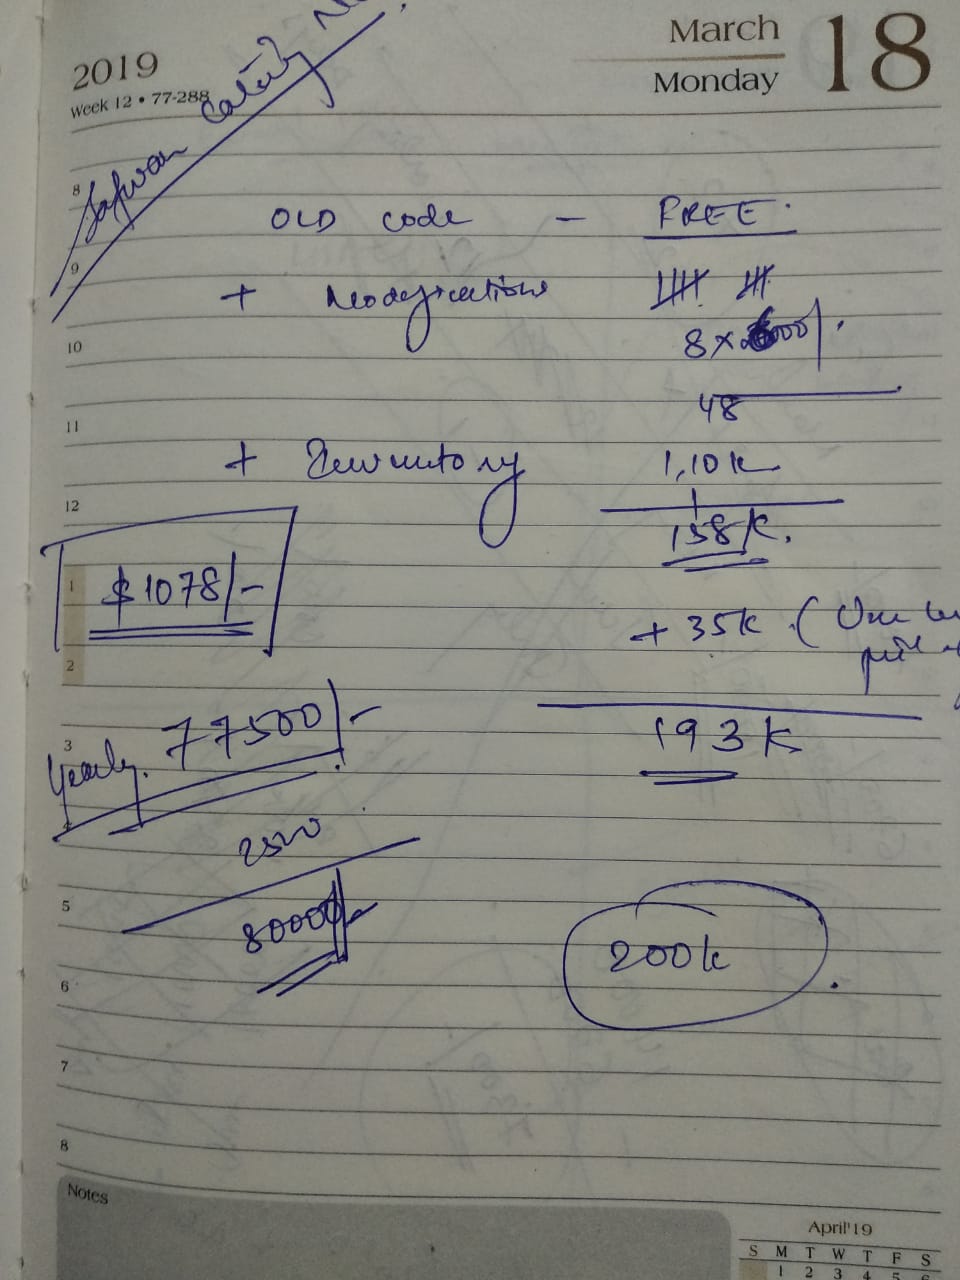 2019
Week 12 • 77-288
March
Monday
18
8
OLD code - FREE.
9
+ Modifications
10
8 x 6000/.
48
11
+ Inventory 1,10k
12
158k.
1
$1078/-
+ 35k (One
2
3
Yearly. 77500/-
193k
2500
5
80000/-
200k
6
7
8
Notes
April'19
S M T W T F S
1 2 3 4 5 6